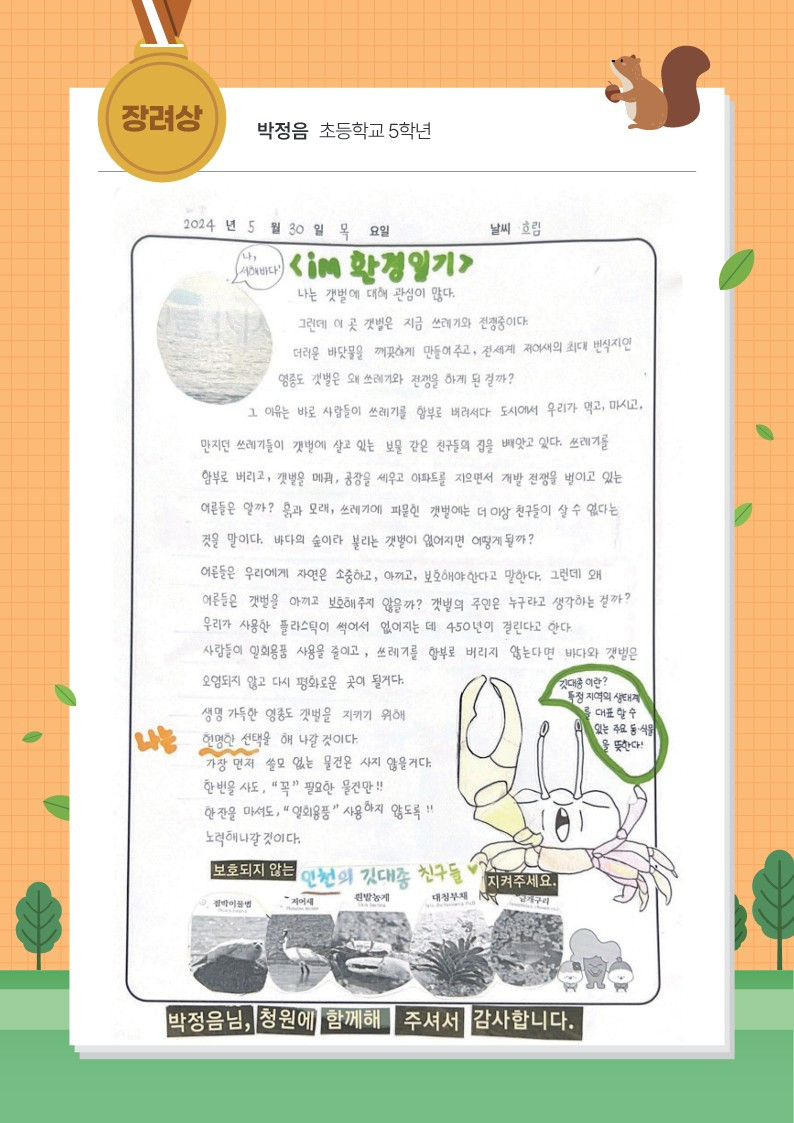 장려상
박정음 초등학교 5학년
2024 년 5 월 30 일 목 요일 날씨 흐림
나,
서해바다!
<iM 환경일기>
나는 갯벌에 대해 관심이 많다.
그런데 이 곳 갯벌은 지금 쓰레기와 전쟁중이다.
더러운 바닷물을 깨끗하게 만들어주고, 전세계 저어새의 최대 번식지인
영종도 갯벌은 왜 쓰레기와 전쟁을 하게 된 걸까?
그 이유는 바로 사람들이 쓰레기를 함부로 버려서다 도시에서 우리가 먹고, 마시고,
만지던 쓰레기들이 갯벌에 살고 있는 보물 같은 친구들의 집을 빼앗고 있다. 쓰레기를
함부로 버리고, 갯벌을 메꿔, 공장을 세우고 아파트를 지으면서 개발 전쟁을 벌이고 있는
어른들은 알까? 흙과 모래, 쓰레기에 파묻힌 갯벌에는 더 이상 친구들이 살 수 없다는
것을 말이다. 바다의 숲이라 불리는 갯벌이 없어지면 어떻게 될까?
어른들은 우리에게 자연은 소중하고, 아끼고, 보호해야 한다고 말한다. 그런데 왜
어른들은 갯벌을 아끼고 보호해주지 않을까? 갯벌의 주인은 누구라고 생각하는 걸까?
우리가 사용한 플라스틱이 썩어서 없어지는 데 450년이 걸린다고 한다.
사람들이 일회용품 사용을 줄이고, 쓰레기를 함부로 버리지 않는다면 바다와 갯벌은
오염되지 않고 다시 평화로운 곳이 될거다.
생명 가득한 영종도 갯벌을 지키기 위해
나는 현명한 선택을 해 나갈 것이다.
가장 먼저 쓸모 없는 물건은 사지 않을거다.
한번을 사도, "꼭" 필요한 물건만!!
한잔을 마셔도, "일회용품" 사용하지 않도록!!
노력해나갈 것이다.
깃대종이란?
특정 지역의 생태계
를 대표 할 수
있는 주요 동·식물
을 뜻한다!
보호되지 않는 인천의 깃대종 친구들 지켜주세요.
점박이물범
저어새
흰발농게
대청부채
금개구리
박정음님, 청원에 함께해 주셔서 감사합니다.